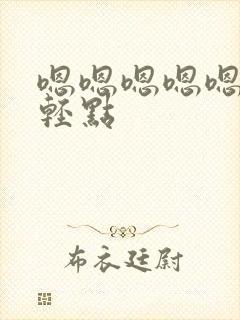 嗯嗯嗯嗯嗯
輕點
布衣廷尉